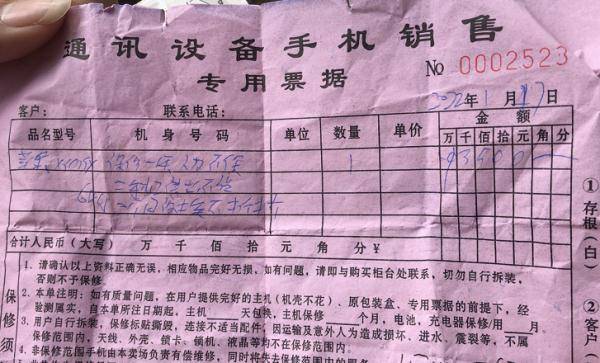 通讯设备手机销售
专用票据
№ 0002523
2022年1月17日
客户: 联系电话:
品名型号 机身号码 单位 数量 单价 金额
万 千 佰 拾 元 角 分
苹果 保 一天 人为不保
1
合计人民币(大写) 万 千 佰 拾 元 角 分 ¥
①存根(白)
②客户
保修须
1、请确认以上资料正确无误,相应物品完好无损,如有问题,请即与购买柜台处联系,切勿自行拆装,
否则不予保修。
2、本单注明:如有质量问题,在用户提供完好的主机(机壳不花)、原包装盒、专用票据的前提下,经
验测属实,自本单所注日期起,主机 天包换,主机保修 个月,电池,充电器保修/用 月。
3、用户自行拆装、保修标贴撕毁,连接不适当配件,因运输及意外人为造成损坏、进水、震裂等,不属
保修范围内,天线、外壳、锁卡、镐机、液晶等均不在保修范围内。
4、非保修范围手机由本卖场负责有偿维修,同时将失去保修范围内的